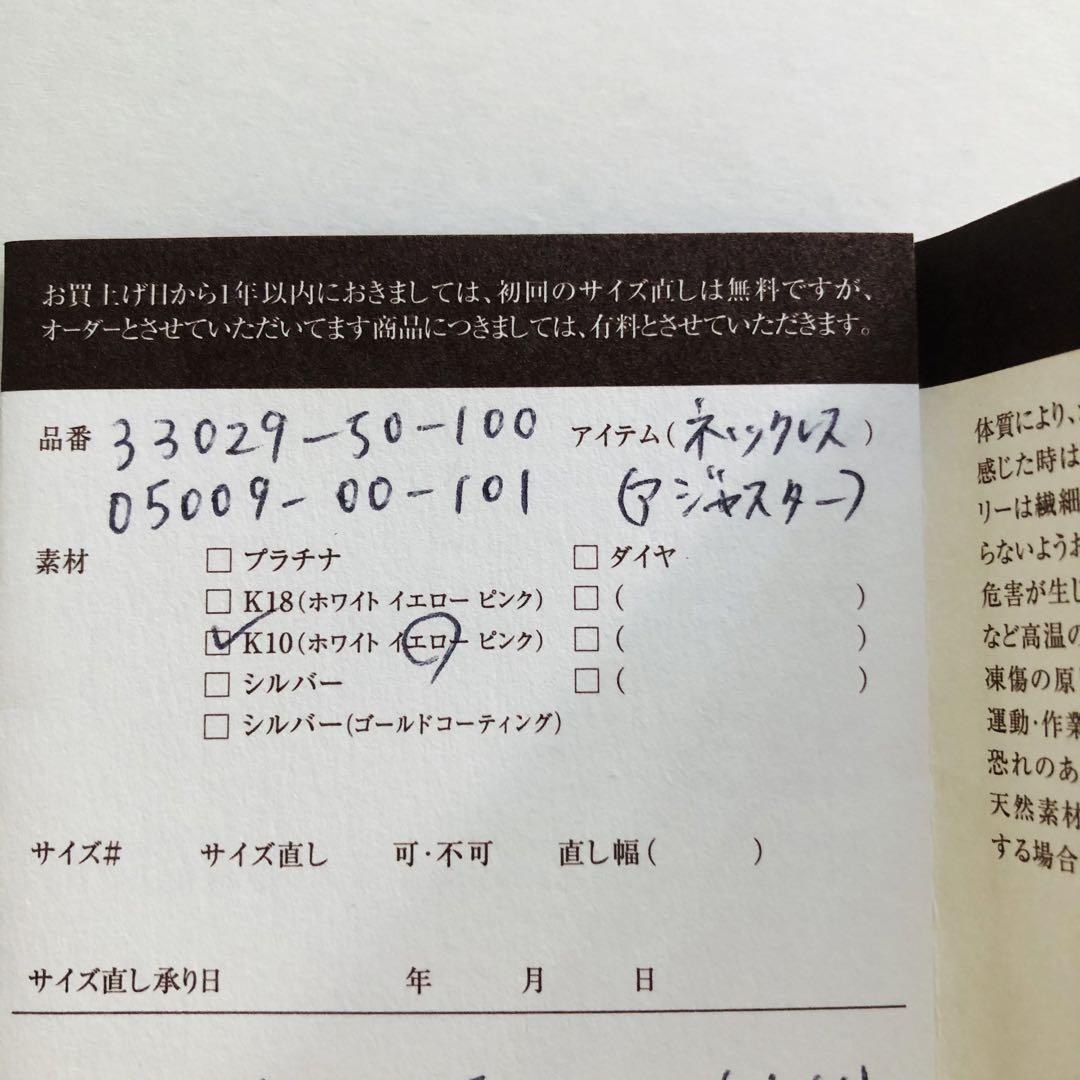 お買上げ日から1年以内におきましては、初回のサイズ直しは無料ですが、
オーダーとさせていただいてます商品につきましては、有料とさせていただきます。
品番 33029-50-100 アイテム(ネックレス)
05009-00-101 (アジャスター)
素材 □ プラチナ □ ダイヤ
□ K18(ホワイト イエロー ピンク) □ ( )
☑ K10(ホワイト イエロー ピンク) □ ( )
□ シルバー □ ( )
□ シルバー(ゴールドコーティング)
サイズ# サイズ直し 可・不可 直し幅( )
サイズ直し承り日 年 月 日
体質により、
感じた時は
リーは繊細
らないようお
危害が生じ
など高温の
凍傷の原
運動・作業
恐れのあ
天然素材
する場合